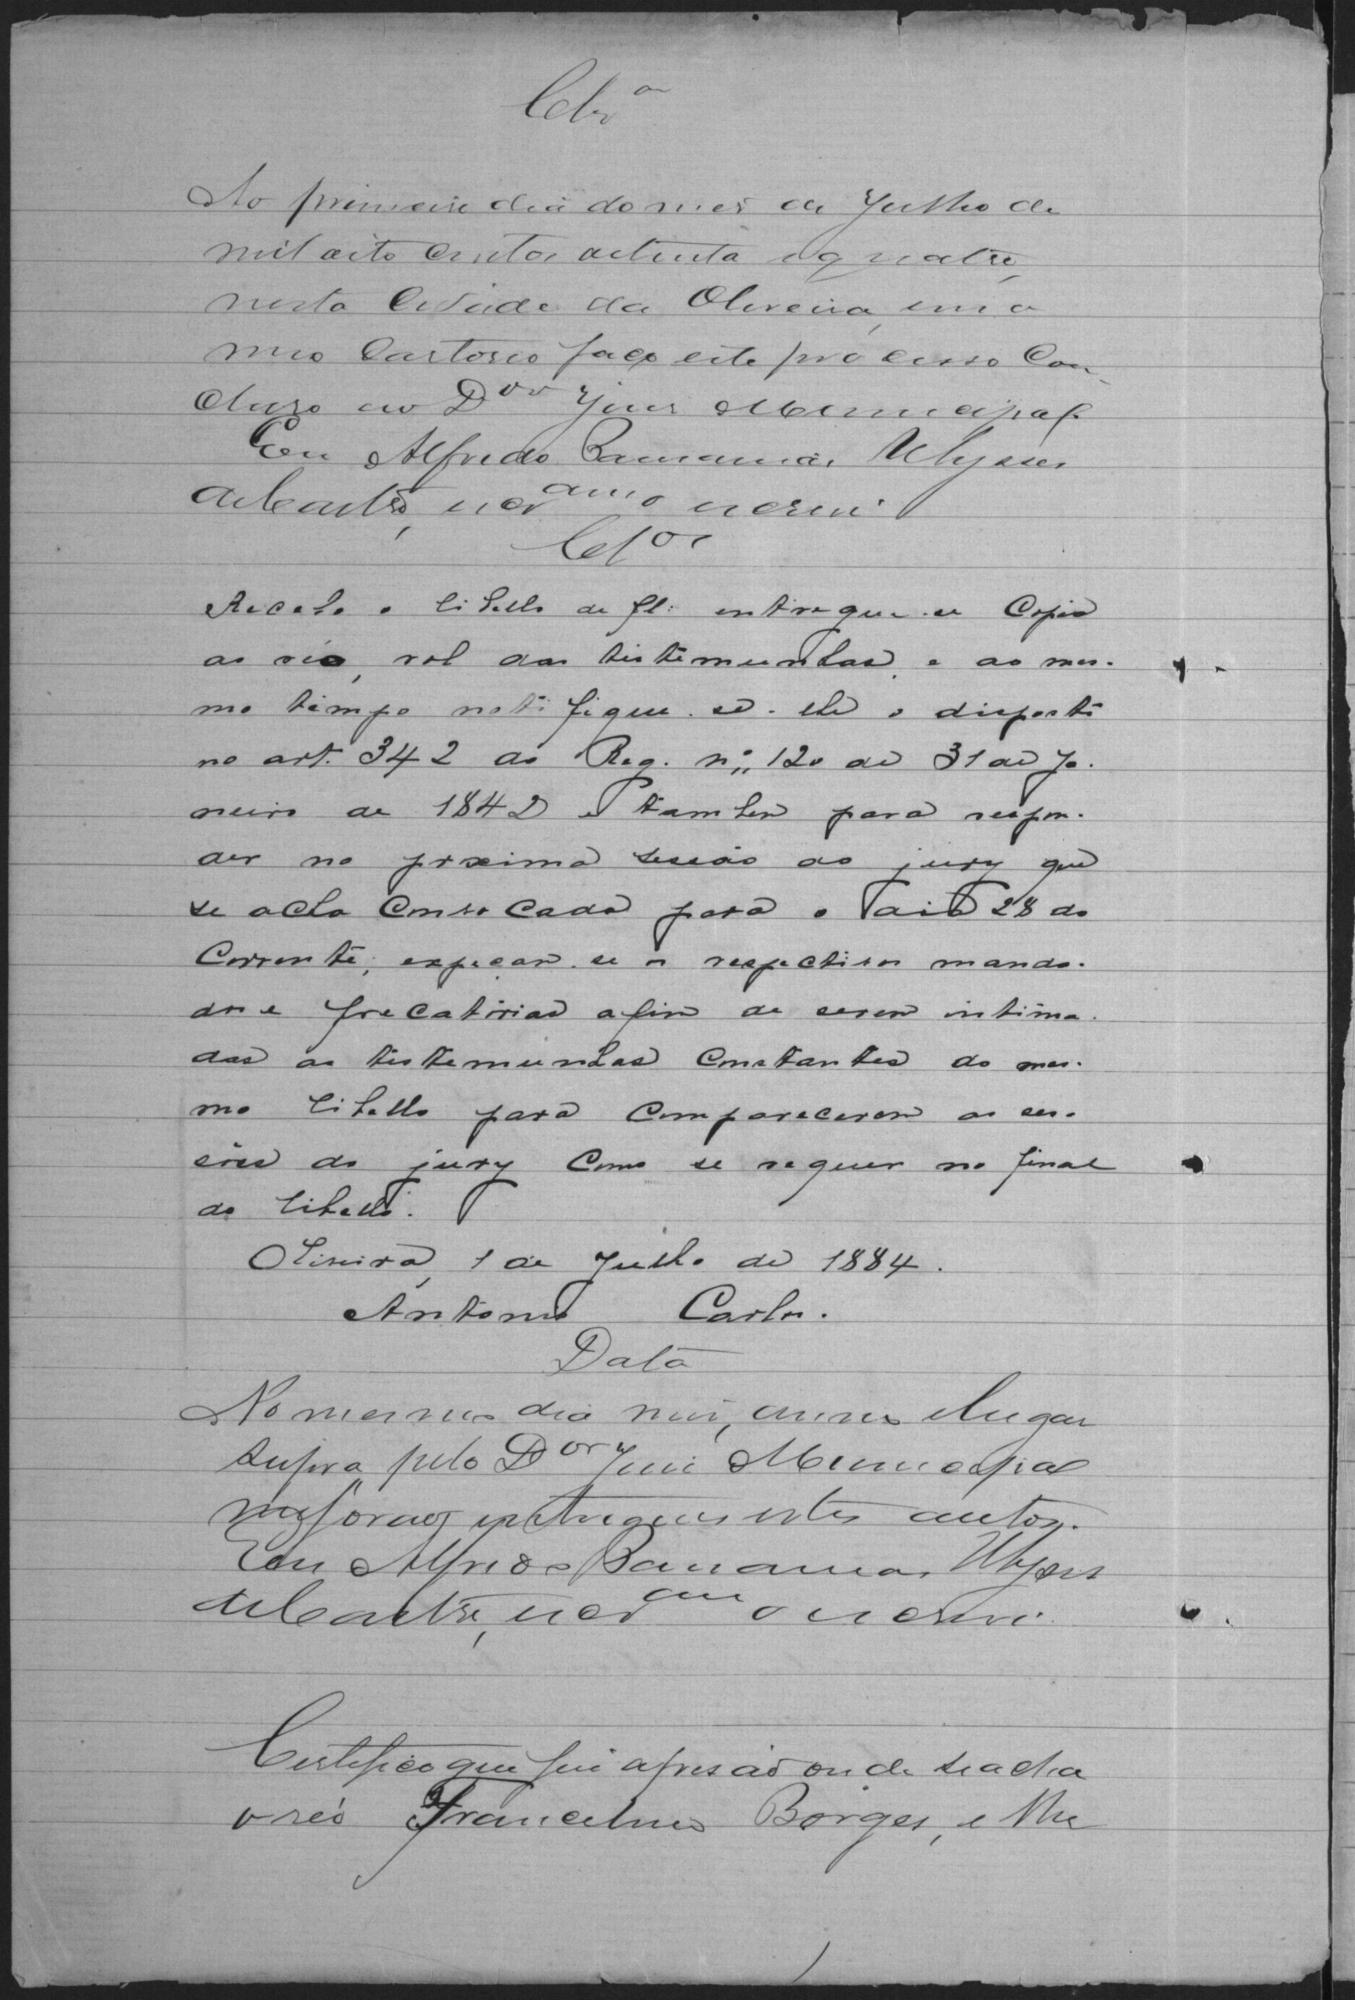 Cls.ª
Ao primeiro dia do mez de Julho de
mil oito centos oitenta e quatro,
nesta Cidade da Oliveira, em o
meo Cartorio faço este processo Con-
cluso ao D.or Juiz Municipal.
Eu Alfredo Bananias Ulysses
de Castro, escr. o escrevi.
Cls.os
Recebo o libello de fl: entregue-se Copia
ao réo, rol das testemunhas, e ao mes-
mo tempo notifique-se-lhe o disposto
no art. 342 do Reg. n.º 120 de 31 de Ja-
neiro de 1842 e tambem para respon-
der na proxima sessão do jury que
se acha Convocada para o dia 28 do
Corrente; expeçam-se os respectivos manda-
dos e precatorias afim de serem intima-
das as testemunhas Constantes do mes-
mo libello para Comparecerem as ses-
sões do jury Como se requer no final
do libello.
Oliveira, 1 de Julho de 1884.
Antonio Carlos.
Data
No mesmo dia mez, anno e lugar
supra, pelo D.or Juiz Municipal
me forão entregues estes autos.
Eu Alfredo Bananias Ulysses
de Castro, escr. o escrevi.
Certifico que fui a prisão onde se acha
o réo Francelino Borges, e lhe